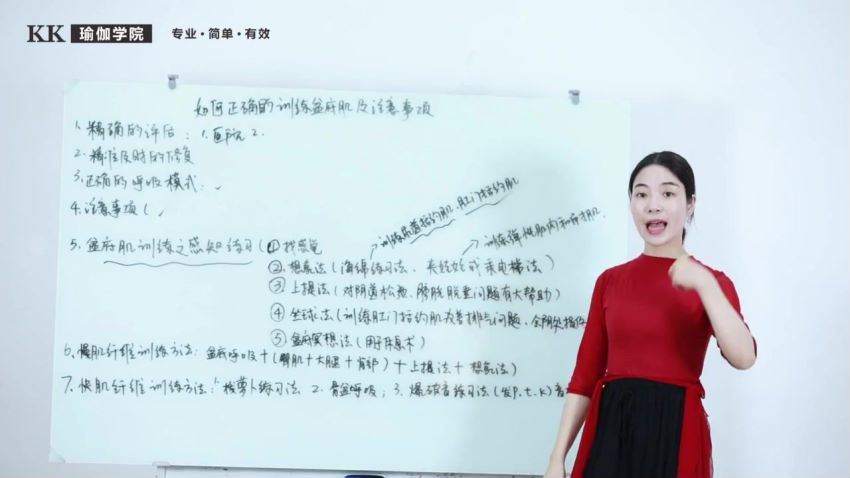 KK 瑜伽学院 专业·简单·有效
如何正确的训练盆府肌及注意事项
1. 精确的评估：1. 医院 2.
2. 精准及时的修复
3. 正确的呼吸模式：✓
4. 注意事项（
训练尿道括约肌、肛门括约肌
训练弹性肌肉和
5. 盆府肌训练之感知练习（① 找感觉
② 想象法（海绵练习法、夹丝丝或乘电梯法）
③ 上提法（对阴道松弛、膀胱脱垂问题有大帮助）
④ 坐球法（训练肛门括约肌改善排气问题、
⑤ 盆府冥想法（用于休息术）
6. 慢肌纤维训练方法：盆府呼吸＋（臀肌＋大腿＋背部）＋上提法＋想象法）
7. 快肌纤维训练方法：1. 拔萝卜练习法 2. 骨盆呼吸；3. 爆破音练习法（发P.t.k）音